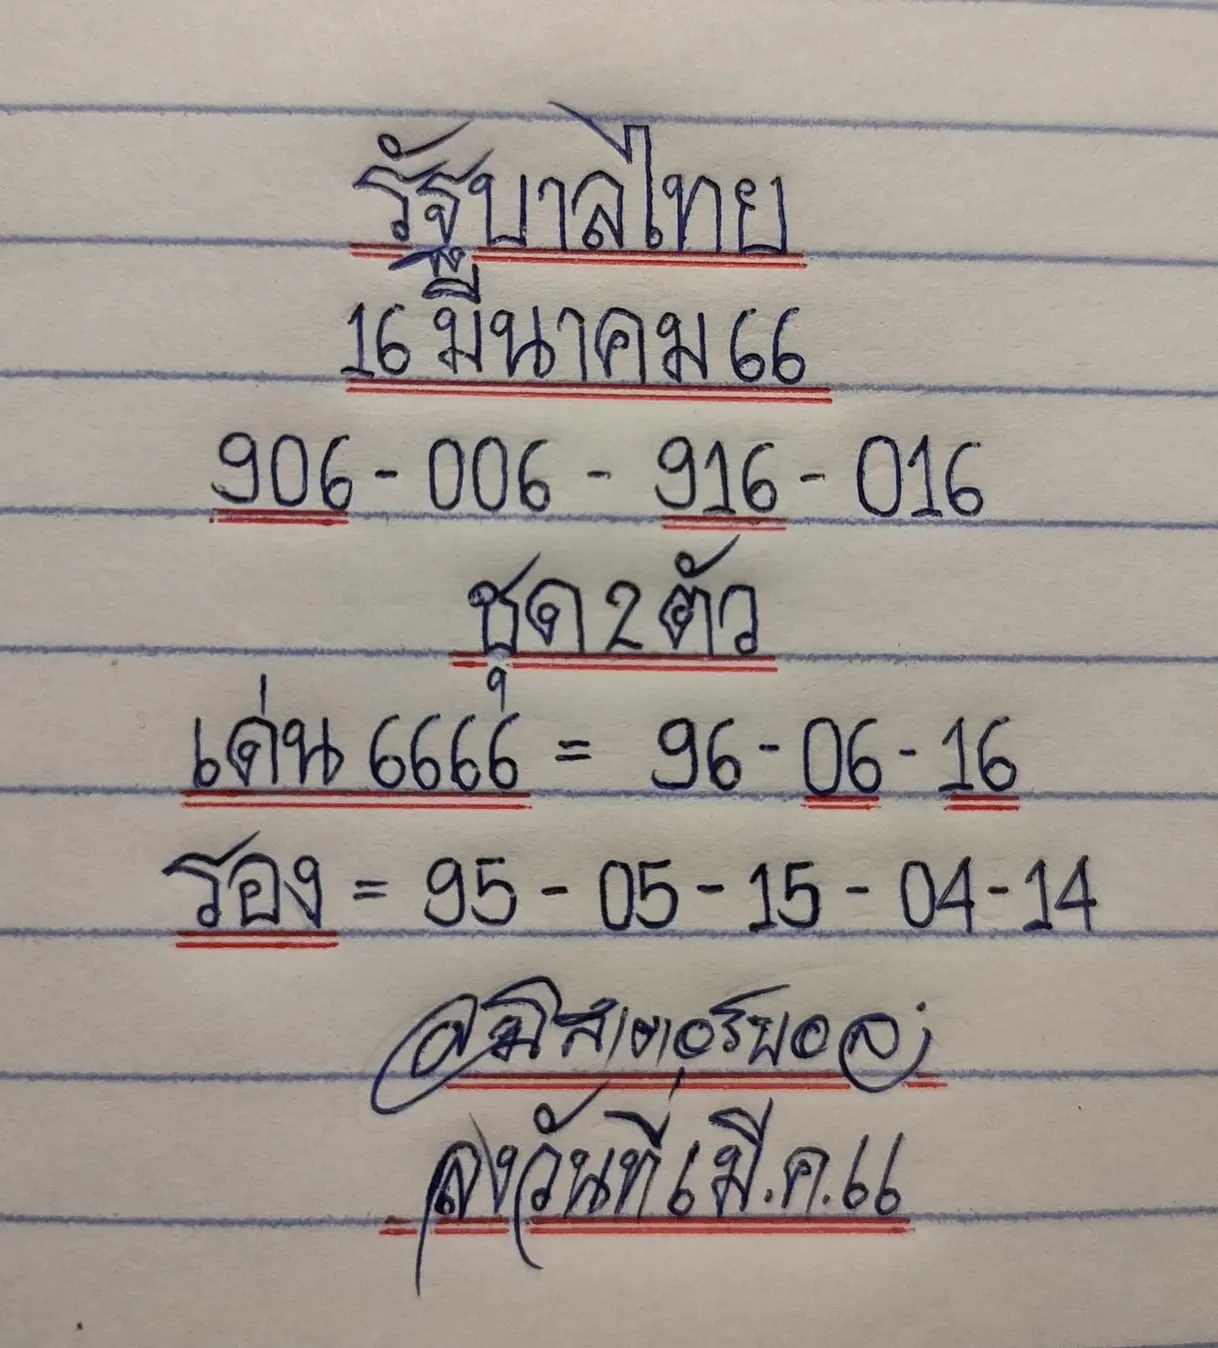 รัฐบาลไทย
16 มีนาคม 66
906 - 006 - 916 - 016
ชุด 2 ตัว
เด่น 6666 = 96 - 06 - 16
รอง = 95 - 05 - 15 - 04 - 14
ลงวันที่ 6 มี.ค.66